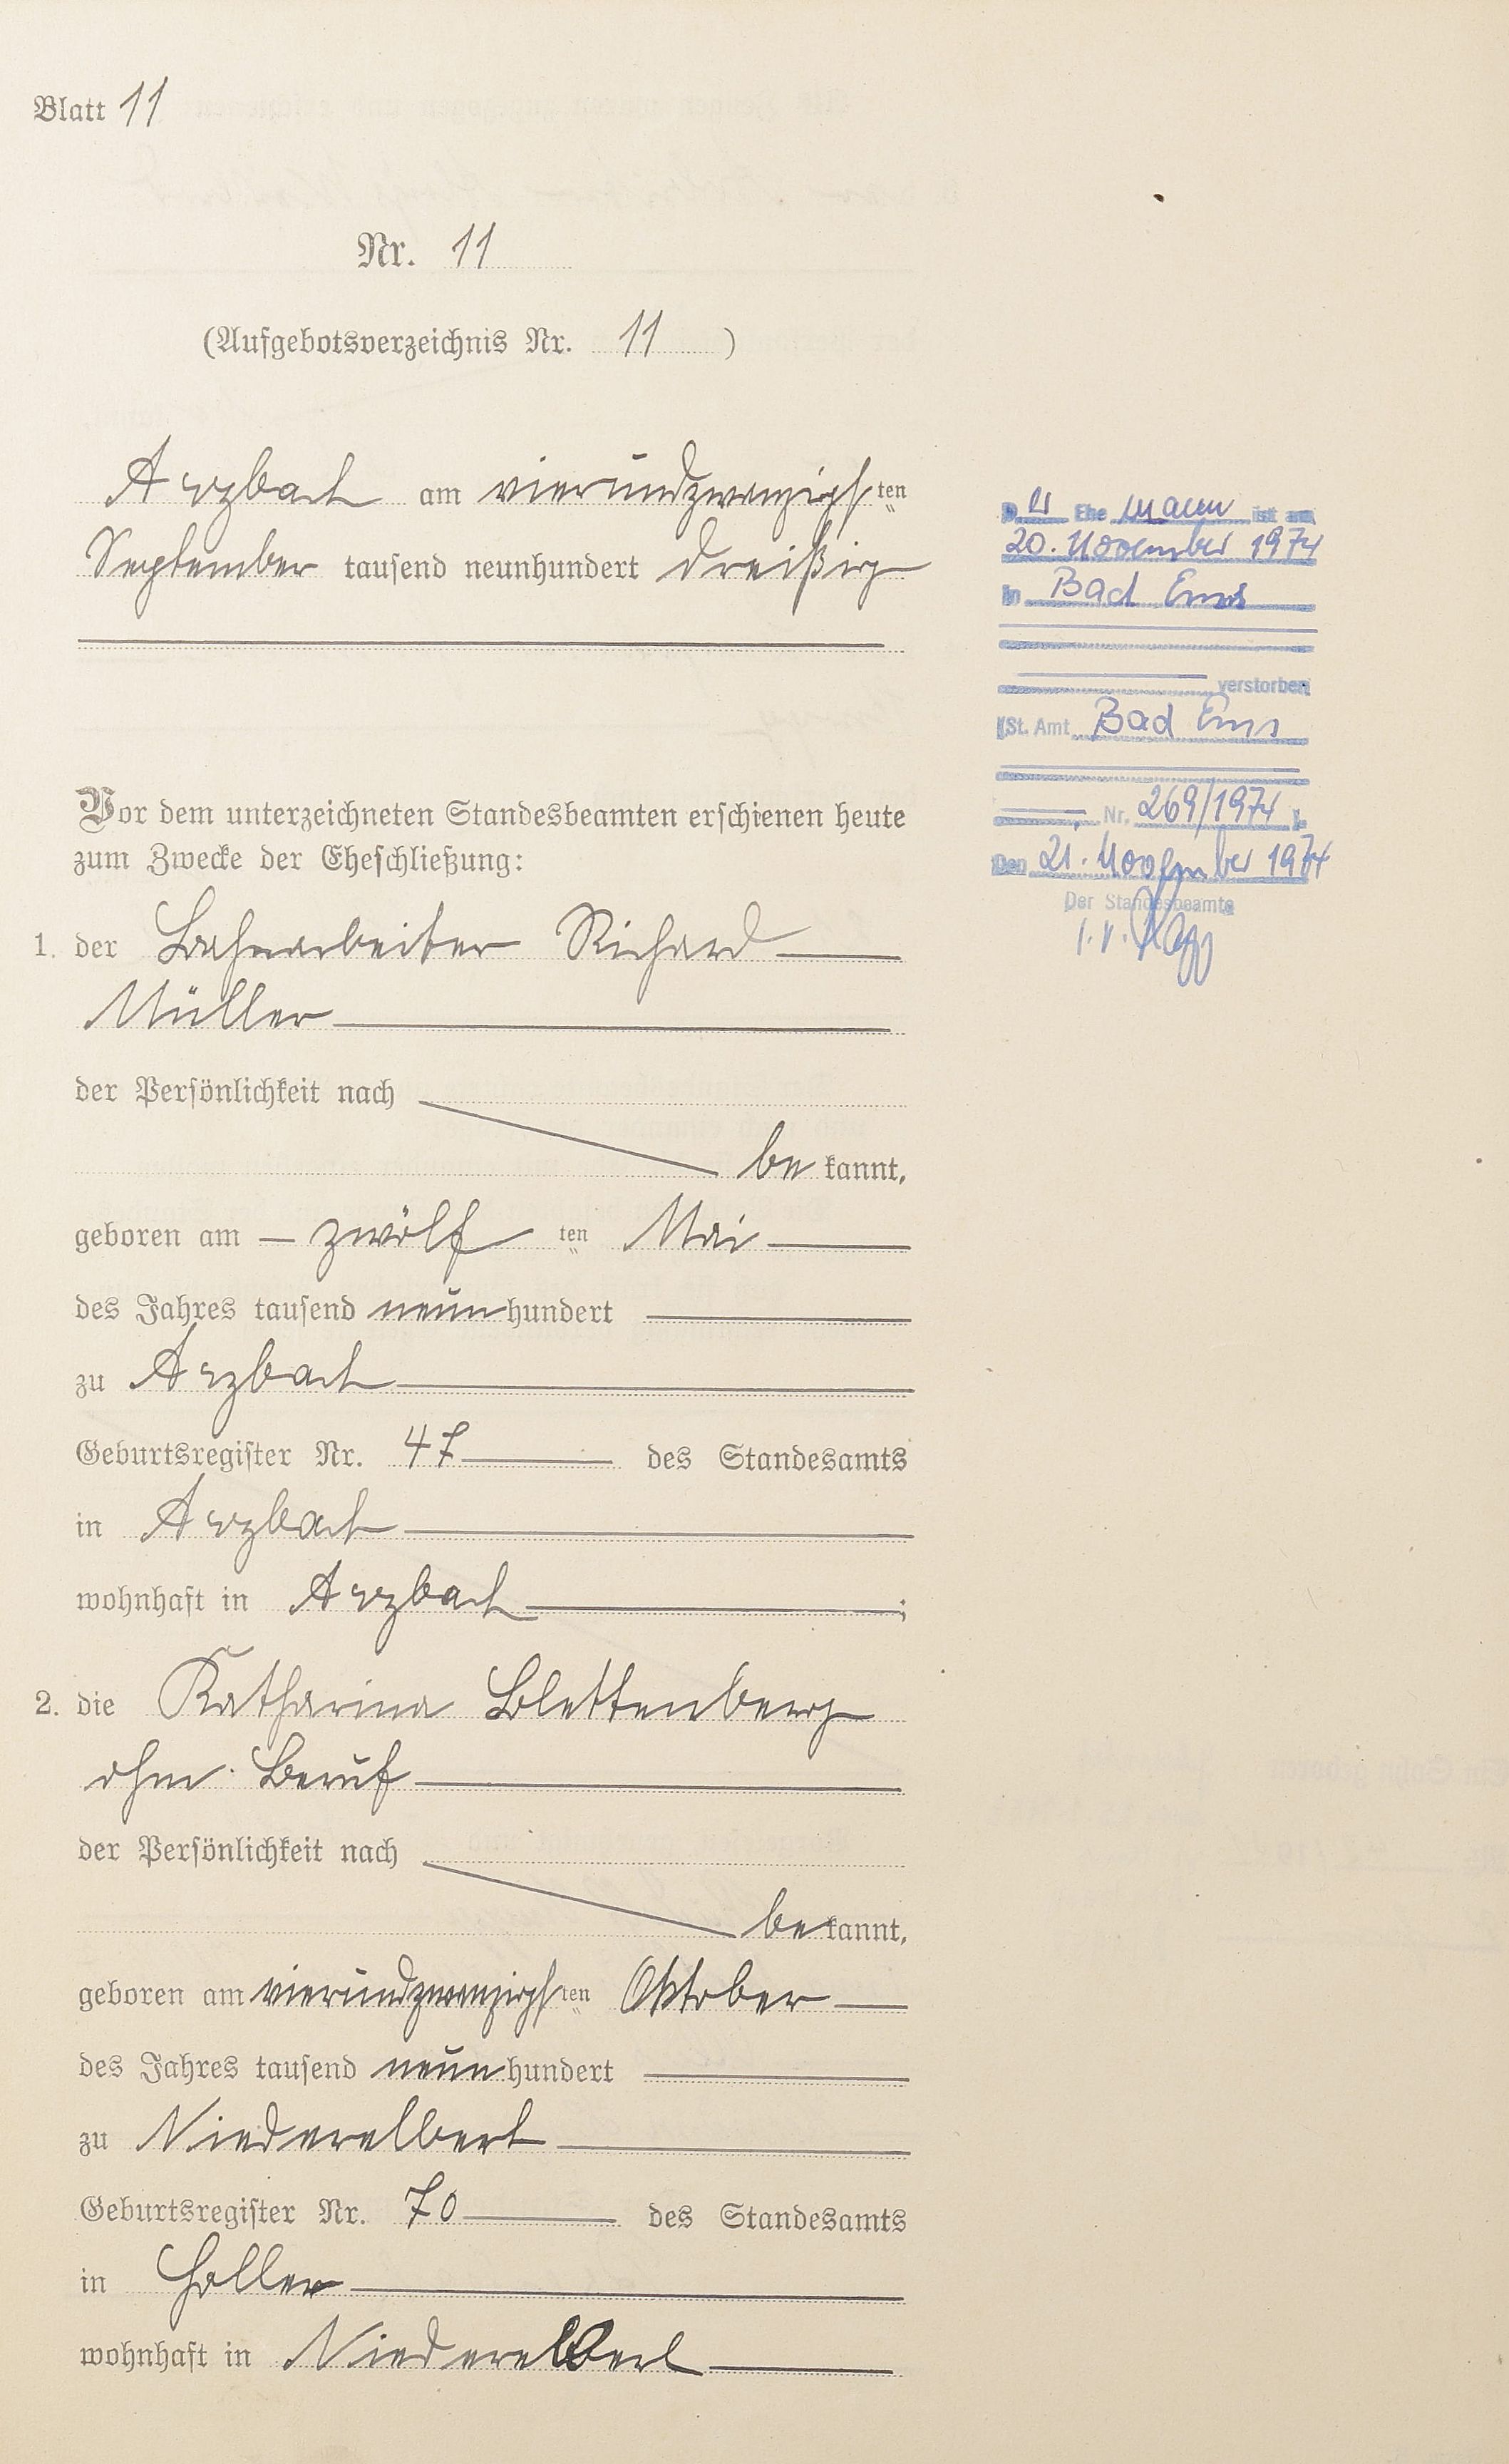 Blatt 11
Nr. 11
(Aufgebotsverzeichnis Nr. 11 )
Arzbach am vierundzwanzigsten
September tausend neunhundert dreißig
Vor dem unterzeichneten Standesbeamten erschienen heute
zum Zwecke der Eheschließung:
1. der Bahnarbeiter Richard
Müller
der Persönlichkeit nach
be kannt,
geboren am zwölf ten Mai
des Jahres tausend neun hundert
zu Arzbach
Geburtsregister Nr. 47 des Standesamts
in Arzbach
wohnhaft in Arzbach ;
2. die Katharina Blettenberg
ohne Beruf
der Persönlichkeit nach
be kannt,
geboren am vierundzwanzigsten Oktober
des Jahres tausend neun hundert
zu Niederelbert
Geburtsregister Nr. 70 des Standesamts
in Holler
wohnhaft in Niederelbert
Der Ehemann ist am
20. November 1974
in Bad Ems
verstorben
(St. Amt Bad Ems
Nr. 269/1974 ).
Den 21. November 1974
Der Standesbeamte
i.V.